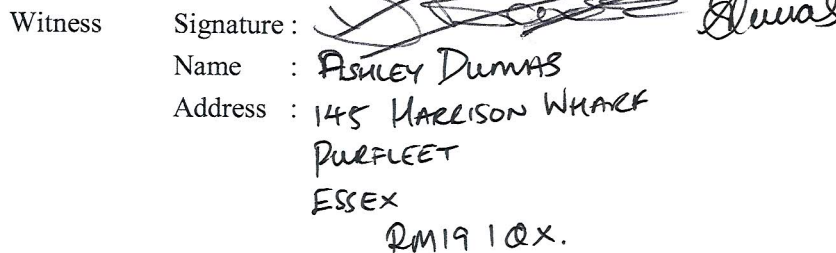 Witness Signature :
Name : ASHLEY DUMAS
Address : 145 HARRISON WHARF
PURFLEET
ESSEX
RM19 1QX.